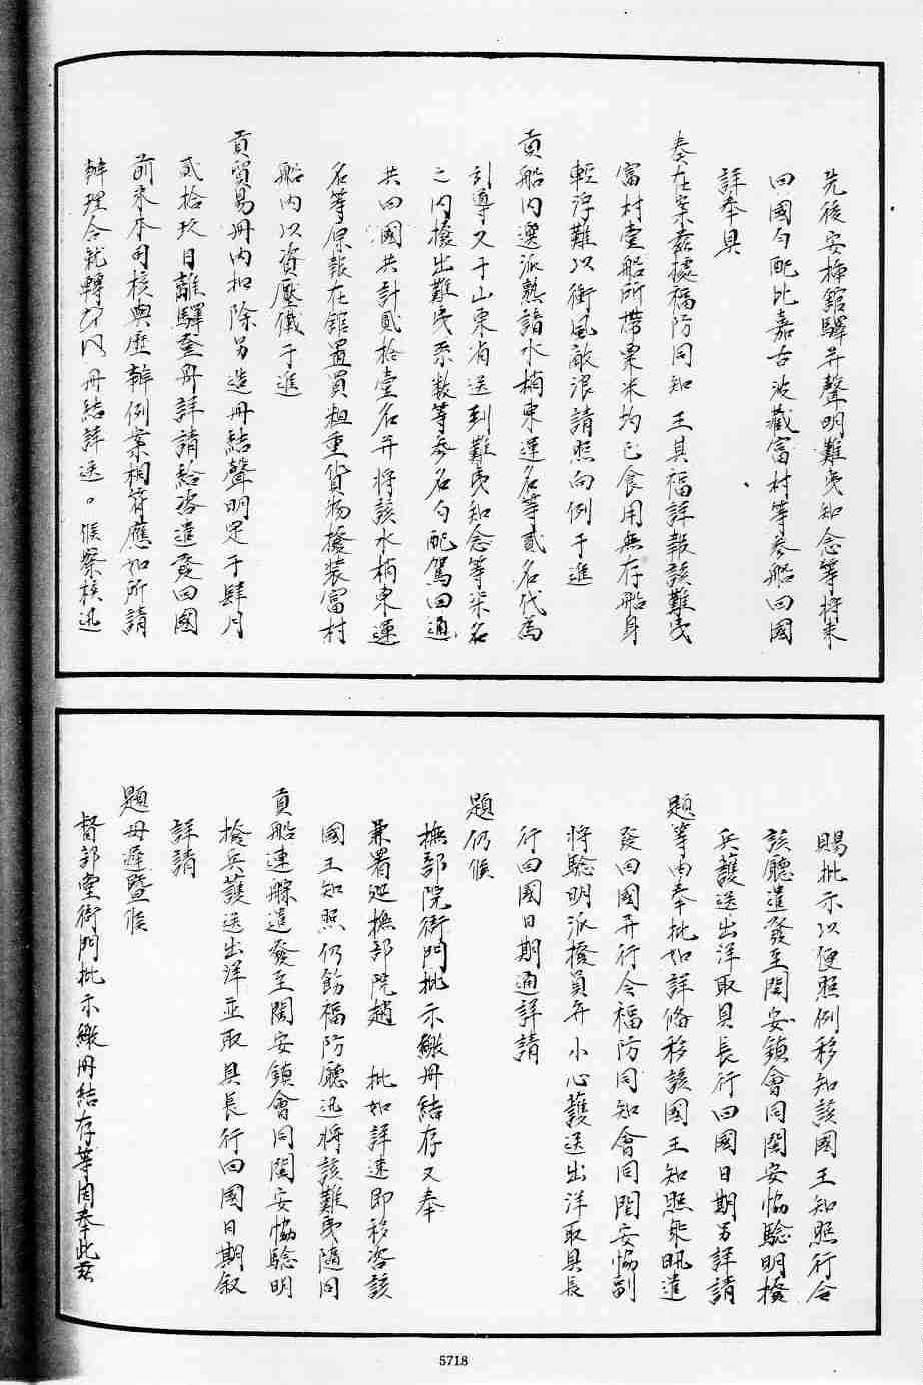 先後安揷館驛并聲明難夷知念等將來
回國勻配比嘉古波藏富村等叁船回國
詳奉具
奏在案茲據福防同知 王其福詳報該難夷
富村壹船所帶粟米均已食用無存船身
輕浮難以衝風敵浪請照向例于進
貢船內選派熟諳水梢東運名等貳名代為
引導又于山東省送到難夷知念等柒名
之內撥出難夷系數等叁名勻配駕回通
共回國共計貳拾壹名并將該水梢東運
名等保報在館置買粗重貨物撥裝富村
船內以資壓儀于進
貢貿易冊內扣除另造冊結聲明定于肆月
貳拾玖日離驛登舟詳請給咨遣發回國
前來本司核與歷辦例案相符應如所請
辦理合就轉 冊結詳送 候察核迅
賜批示以便照例移知該國王知照行令
該廳遣發至閩安鎮會同閩安協騐明撥
兵護送出洋取具長行回國日期另詳請
題等由奉批如詳俻移該國王知照飛飭遣
發回國并行令福防同知會同閩安協副
將騐明派撥員弁小心護送出洋取具長
行回國日期通詳請
題仍候
撫部院衙門批示繳冊結存又奉
兼署廵撫部院趙 批如詳速即移咨該
國王知照仍飭福防廳迅將該難夷隨同
貢船連䑸遣發至閩安鎮會同閩安協騐明
撥兵護送出洋並取具長行回國日期叙
詳請
題毋遲暨候
督部堂衙門批示繳冊結存等因奉此茲
5718